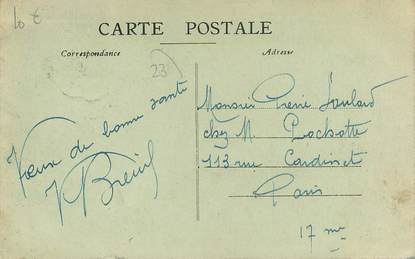 10 €
CARTE POSTALE
Correspondance
Adresse
23
Vœux de bonne santé
Breuil
Monsieur René
chez M. Rochotte
113 rue Cardinet
Paris
17 me